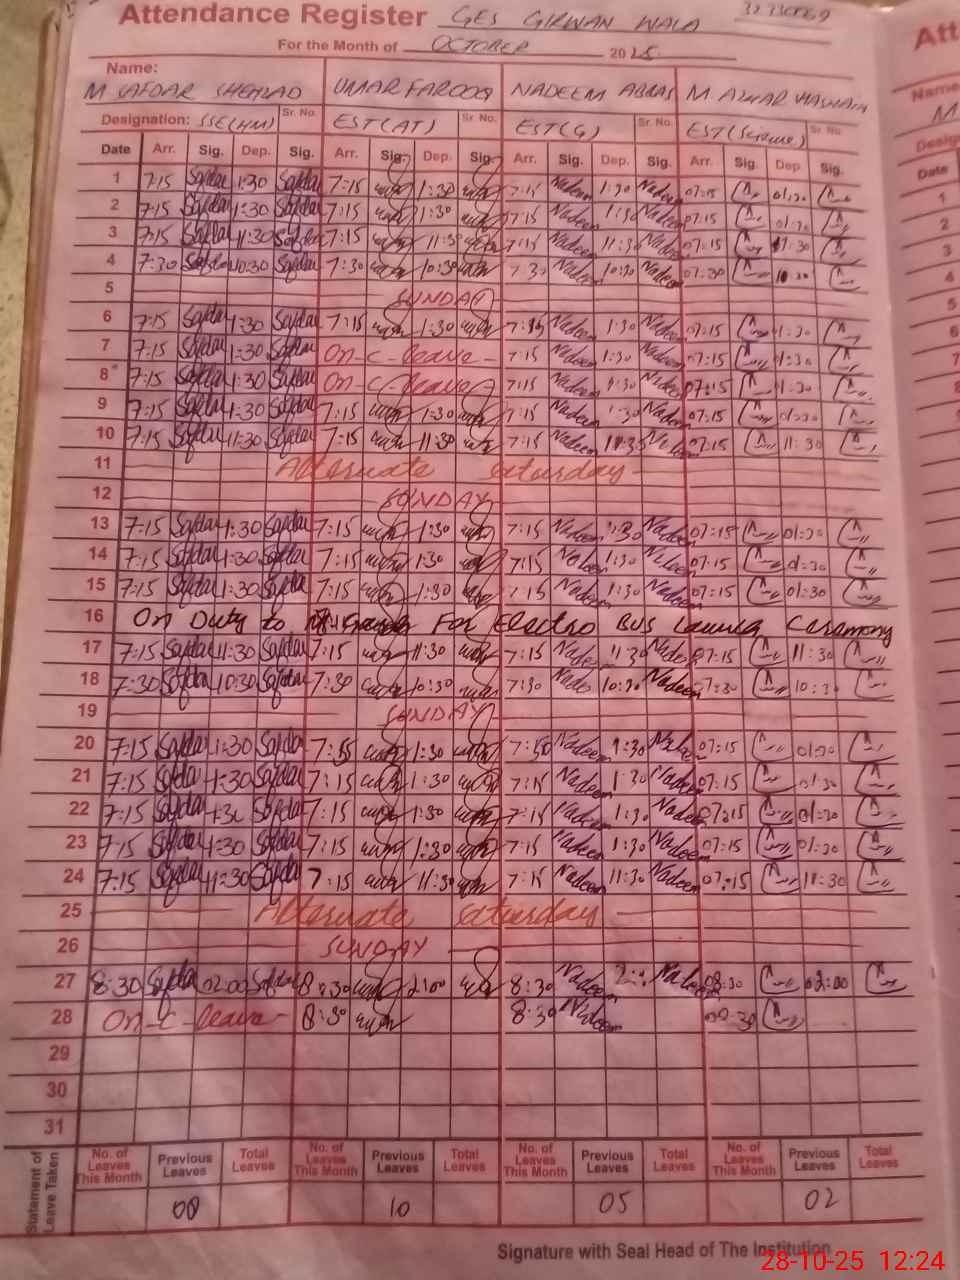 Attendance Register GES GIRWAN WALA
For the Month of OCTOBER 2025
Name:
M SAFDAR SHEHZAD UMAR FAROOQ NADEEM ABBAS M AZHAR HASNAIN
Designation: SSE(HM) Sr. No. EST(AT) Sr. No. EST(G) Sr. No. EST(Science) Sr. No.
Date Arr. Sig. Dep. Sig. Arr. Sig. Dep. Sig. Arr. Sig. Dep. Sig. Arr. Sig. Dep Sig.
1 7:15 Safdar 1:30 Safdar 7:15 1:30 7:15 Nadeem 1:30 Nadeem 07:15 01:30
2 7:15 Safdar 1:30 Safdar 7:15 1:30 7:15 Nadeem 1:30 Nadeem 07:15 01:30
3 7:15 Safdar 11:30 Safdar 7:15 11:30 7:15 Nadeem 11:30 Nadeem 07:15 11:30
4 7:30 Safdar 10:30 Safdar 7:30 10:30 7:30 Nadeem 10:30 Nadeem 07:30 10:30
5 SUNDAY
6 7:15 Safdar 1:30 Safdar 7:15 1:30 7:15 Nadeem 1:30 Nadeem 07:15 1:30
7 7:15 Safdar 1:30 Safdar On-C-leave - 7:15 Nadeem 1:30 Nadeem 07:15 01:30
8 7:15 Safdar 1:30 Safdar On-C-leave 7:15 Nadeem 1:30 Nadeem 07:15 01:30
9 7:15 Safdar 1:30 Safdar 7:15 1:30 7:15 Nadeem 1:30 Nadeem 07:15 01:30
10 7:15 Safdar 11:30 Safdar 7:15 11:30 7:15 Nadeem 11:30 Nadeem 07:15 11:30
11 Alternate Saturday
12 SUNDAY
13 7:15 Safdar 1:30 Safdar 7:15 1:30 7:15 Nadeem 1:30 Nadeem 07:15 01:30
14 7:15 Safdar 1:30 Safdar 7:15 1:30 7:15 Nadeem 1:30 Nadeem 07:15 01:30
15 7:15 Safdar 1:30 Safdar 7:15 1:30 7:15 Nadeem 1:30 Nadeem 07:15 01:30
16 On Duty to For Electro BUS Launch Ceremony
17 7:15 Safdar 11:30 Safdar 7:15 11:30 7:15 Nadeem 11:30 Nadeem 07:15 11:30
18 7:30 Safdar 10:30 Safdar 7:30 10:30 7:30 Nadeem 10:30 Nadeem 7:30 10:30
19 SUNDAY
20 7:15 Safdar 1:30 Safdar 7:15 1:30 Nadeem 1:30 Nadeem 07:15 01:30
21 7:15 Safdar 1:30 Safdar 7:15 1:30 7:15 Nadeem 1:30 Nadeem 07:15 01:30
22 7:15 Safdar 1:30 Safdar 7:15 1:30 7:15 Nadeem 1:30 Nadeem 07:15 01:30
23 7:15 Safdar 1:30 Safdar 7:15 1:30 7:15 Nadeem 1:30 Nadeem 07:15 01:30
24 7:15 Safdar 11:30 Safdar 7:15 11:30 7:15 Nadeem 11:30 Nadeem 07:15 11:30
25 Alternate Saturday
26 SUNDAY
27 8:30 Safdar 02:00 Safdar 8:30 2:00 8:30 Nadeem Nadeem 08:30 02:00
28 On-C-leave - 8:30 8:30 Nadeem 08:30
29
30
31
Statement of Leave Taken
No. of Leaves This Month Previous Leaves Total Leaves No. of Leaves This Month Previous Leaves Total Leaves No. of Leaves This Month Previous Leaves Total Leaves No. of Leaves This Month Previous Leaves Total Leaves
00 10 05 02
Signature with Seal Head of The Institution
28-10-25 12:24